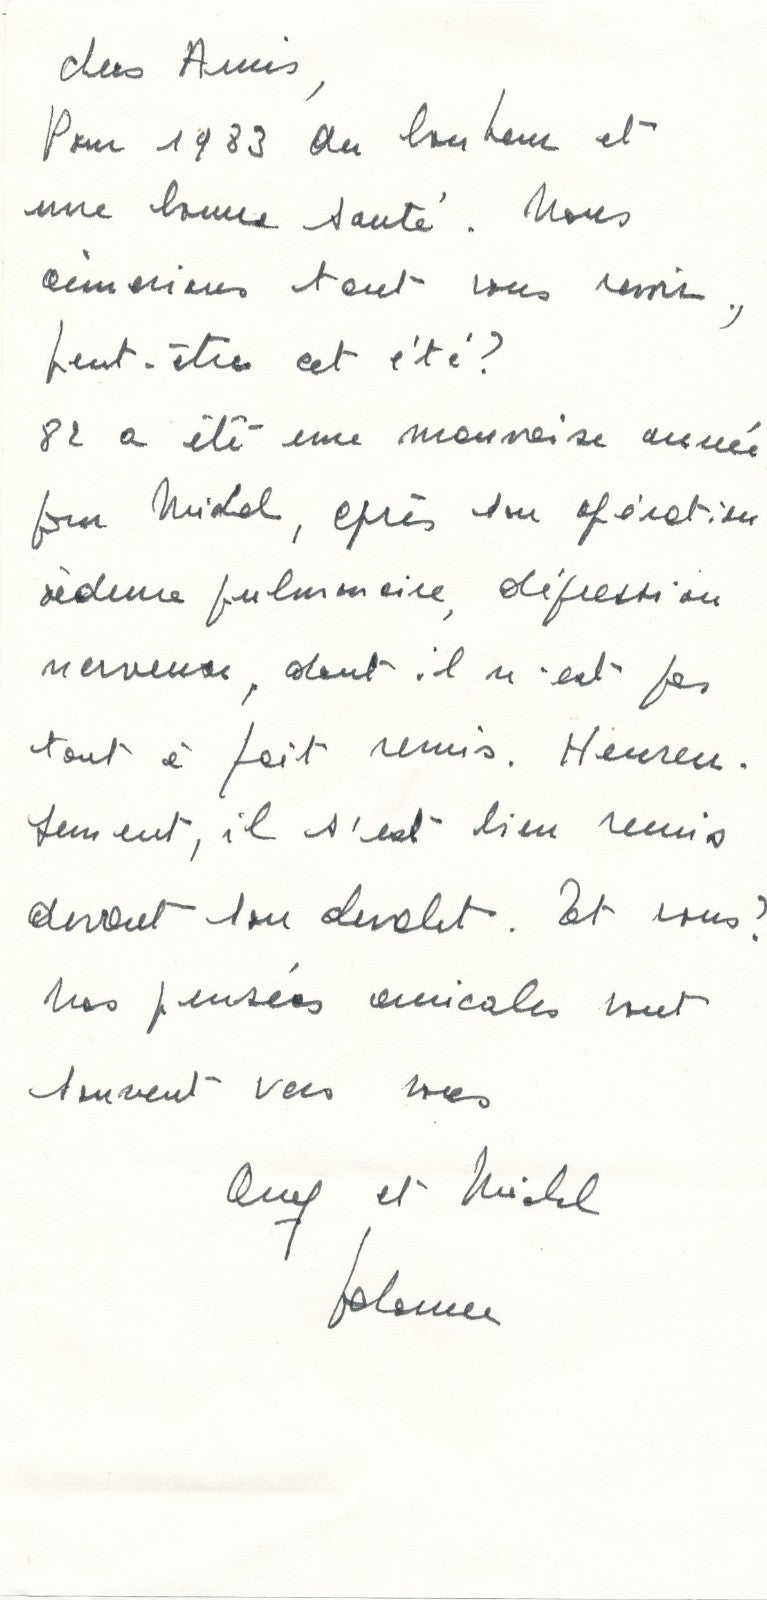 Chers Amis,
Pour 1983 du bonheur et
une bonne santé. Nous
aimerions tant vous revoir,
peut-être cet été?
82 a été une mauvaise année
pour Michel, après son opération
œdème pulmonaire, dépression
nerveuse, dont il n'est pas
tout à fait remis. Heureu-
sement, il s'est bien remis
devant son chevalet. Et vous?
Nos pensées amicales vont
souvent vers vous
et Michel